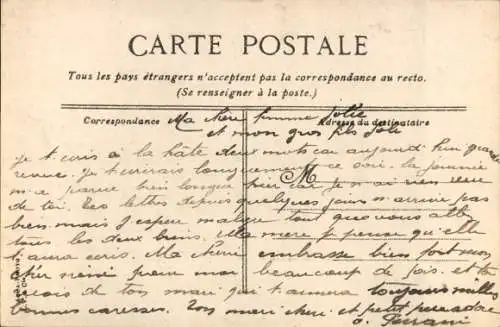 CARTE POSTALE
Tous les pays étrangers n'acceptent pas la correspondance au recto.
(Se renseigner à la poste.)
Correspondance
Adresse du destinataire
Ma chère femme Jolie
et mon gros fils Joli
Je t'écris à la hâte deux mots car aujourd'hui grande
revue. Je t'écrirai longuement ce soir. la journée
m'a parue bien longue hier car je n'ai rien reçu
de toi. Tes lettres depuis quelques jours n'arrive pas
bien. mais J'espère malgré tout que vous allez
tous les deux bien. Ma mère je pense qu'elle
t'aura écris. Ma chérie embrasse bien fort mon
chéri pour moi beaucoup de fois. et toi
reçois de ton mari qui t'aimera toujours mille
bonnes caresses. Ton mari cheri et petit pere adoré